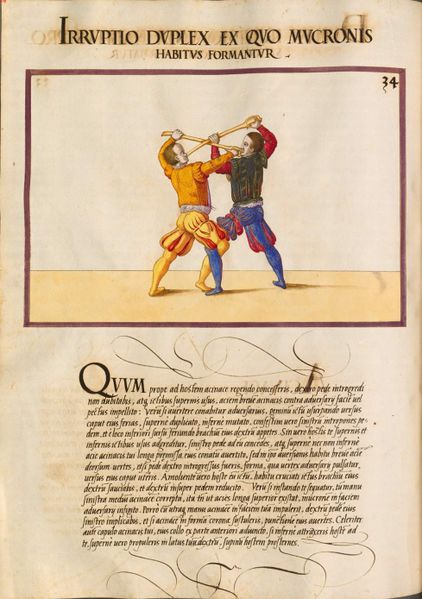 IRRVPTIO DVPLEX EX QVO MVCRONIS
HABITVS FORMANTVR
34
QVVM prope ad hostem acinace regendo concesseris, dextro pede introgredi
non dubitabis, atq, ictibus supernis usus, aciem breve acinacis contra adversarij faciē vel
pectus impellito: Verū si avertere conabitur adversarius, geminū ictū usurpando versus
caput eius ferias, supernè duplicato, infernè mutato, confestim vero sinistrū interpones pe-
dem, at è loco inferiori sursū feriundo brachiū eius dextrū appetes. Sin vero hostis te supernis et
infernis ictibus usus adgreditur, sinistro pede ad eū concedes, atq, supernè nec non infernè
acie acinacis tua longa premissa eius conatū avertito, sed in ipo aversionis habitu breve acie
deorsum vertes, et si pede dextro introgressus fueris, forma, qua vertex adversarij pulsatur,
versus eius caput utitor. Amolvente vero hoste eū ictū, habitu cruciato ictibus brachiū eius
dextrū sauciabis, et dextrū insuper pedem reducito. Verū si instando te sequatur, tū manu
sinistra mediū acinacem corripito, ita tn ut acies longa superior existat, mucronē in faciem
adversarij infigito. Porro cū utraq manu acinacē in faciem tuā impulerit, dextrū pede eius
sinistro implicabis, et si acinacē in formā corona sustuleris, punctim eius avertes. Celeriter
autē capulo acinacis tui, eius collo ex parte anteriori adiuncto, si infernè attraxeris hostē ad
te, supernè vero propuleris in latus tuū dextrū, supinū hostem prosternes.